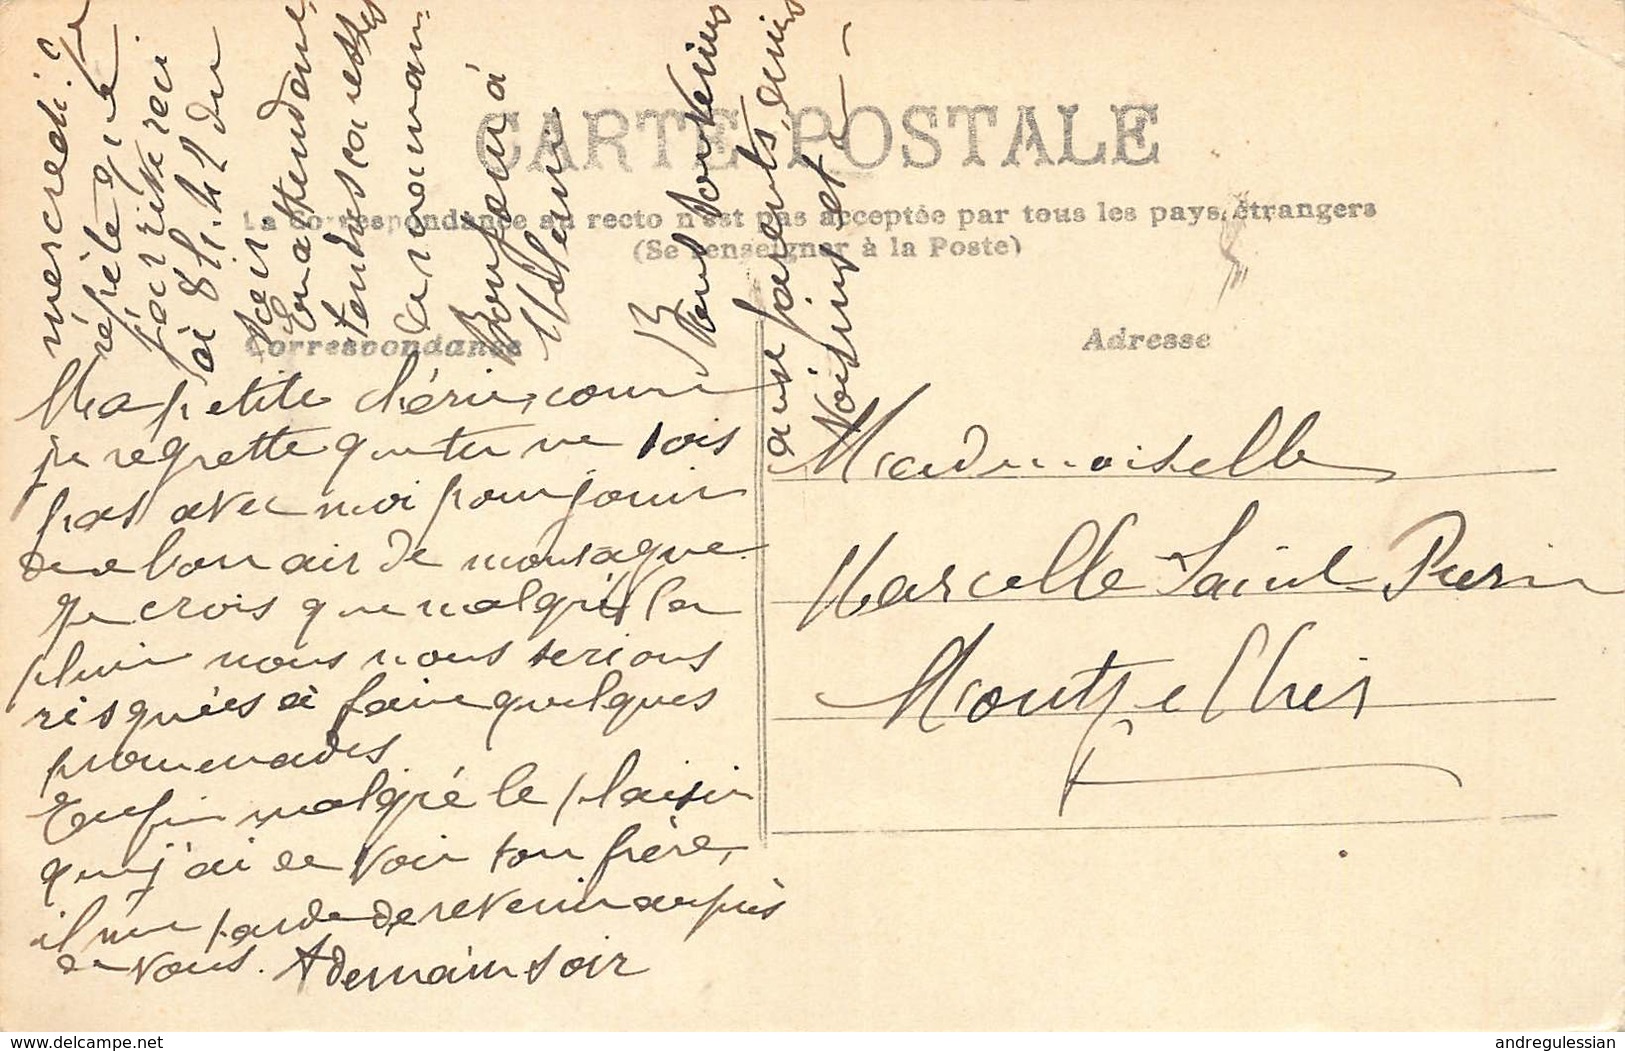 CARTE POSTALE
La Correspondance au recto n'est pas acceptée par tous les pays étrangers
(Se renseigner à la Poste)
Correspondance
Adresse
Ma petite chérie, comme
je regrette que tu ne sois
pas avec moi pour jouir
de ce bon air de montagne
Je crois que malgré la
pluie nous nous serions
risquées à faire quelques
promenades
Enfin malgré le plaisir
que j'ai de voir ton frère,
il me tarde de revenir auprès
de vous. A demain soir
mercredi. Je
répète que je
à 8h. du
soir
En attendant
tendres caresses
Bonjour à
Mille souvenirs
aux parents, amis
Voisins et
Mademoiselle
Marcelle Saint Pierre
Montpellier
delcampe.net
andregulessian